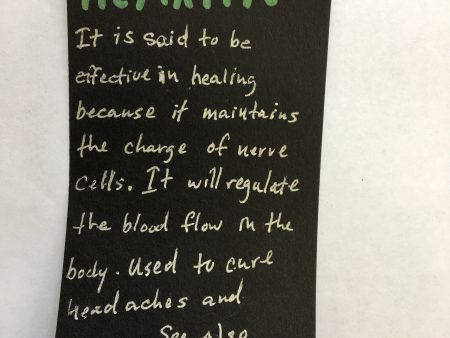 It is said to be
effective in healing
because it maintains
the charge of nerve
cells. It will regulate
the blood flow in the
body. Used to cure
headaches and
See also